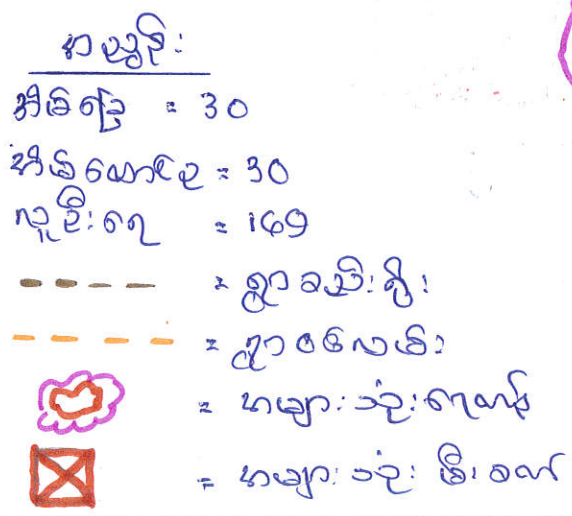 အညွှန်း
အိမ်ခြေ = 30
အိမ်ထောင်စု = 30
လူဦးရေ = 169
= ရွာစည်းရိုး
= ရွာဝင်လမ်း
= အများသုံးရေကန်
= အများသုံး မီးခလုတ်